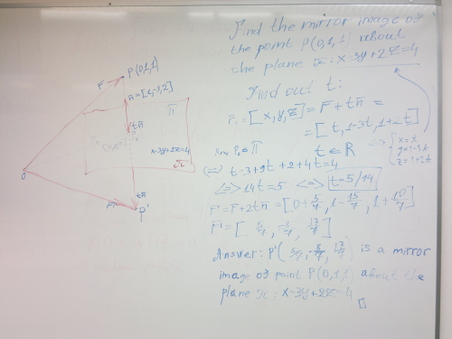 Find the mirror image of
the point P(0,1,1) about
the plane π: x-3y+2z=4
Find out t:
[x,y,z] = r̄ + tn̄ =
= [t, 1-3t, 1+2t]
t ∈ R
⇔ t-3+9t+2+4t=4
⇔ 14t=5 ⇔ t=5/14
r̄' = r̄+2tn̄ = [0+5/7, 1-15/7, 1+10/7]
r̄' = [5/7, -8/7, 17/7]
Answer: P'(5/7, -8/7, 17/7) is a mirror
image of point P(0,1,1) about the
plane π: x-3y+2z=4
r̄
P(0,1,1)
n̄=[1,-3,2]
π
tn̄
x-3y+2z=4
tn̄
r̄'
P'